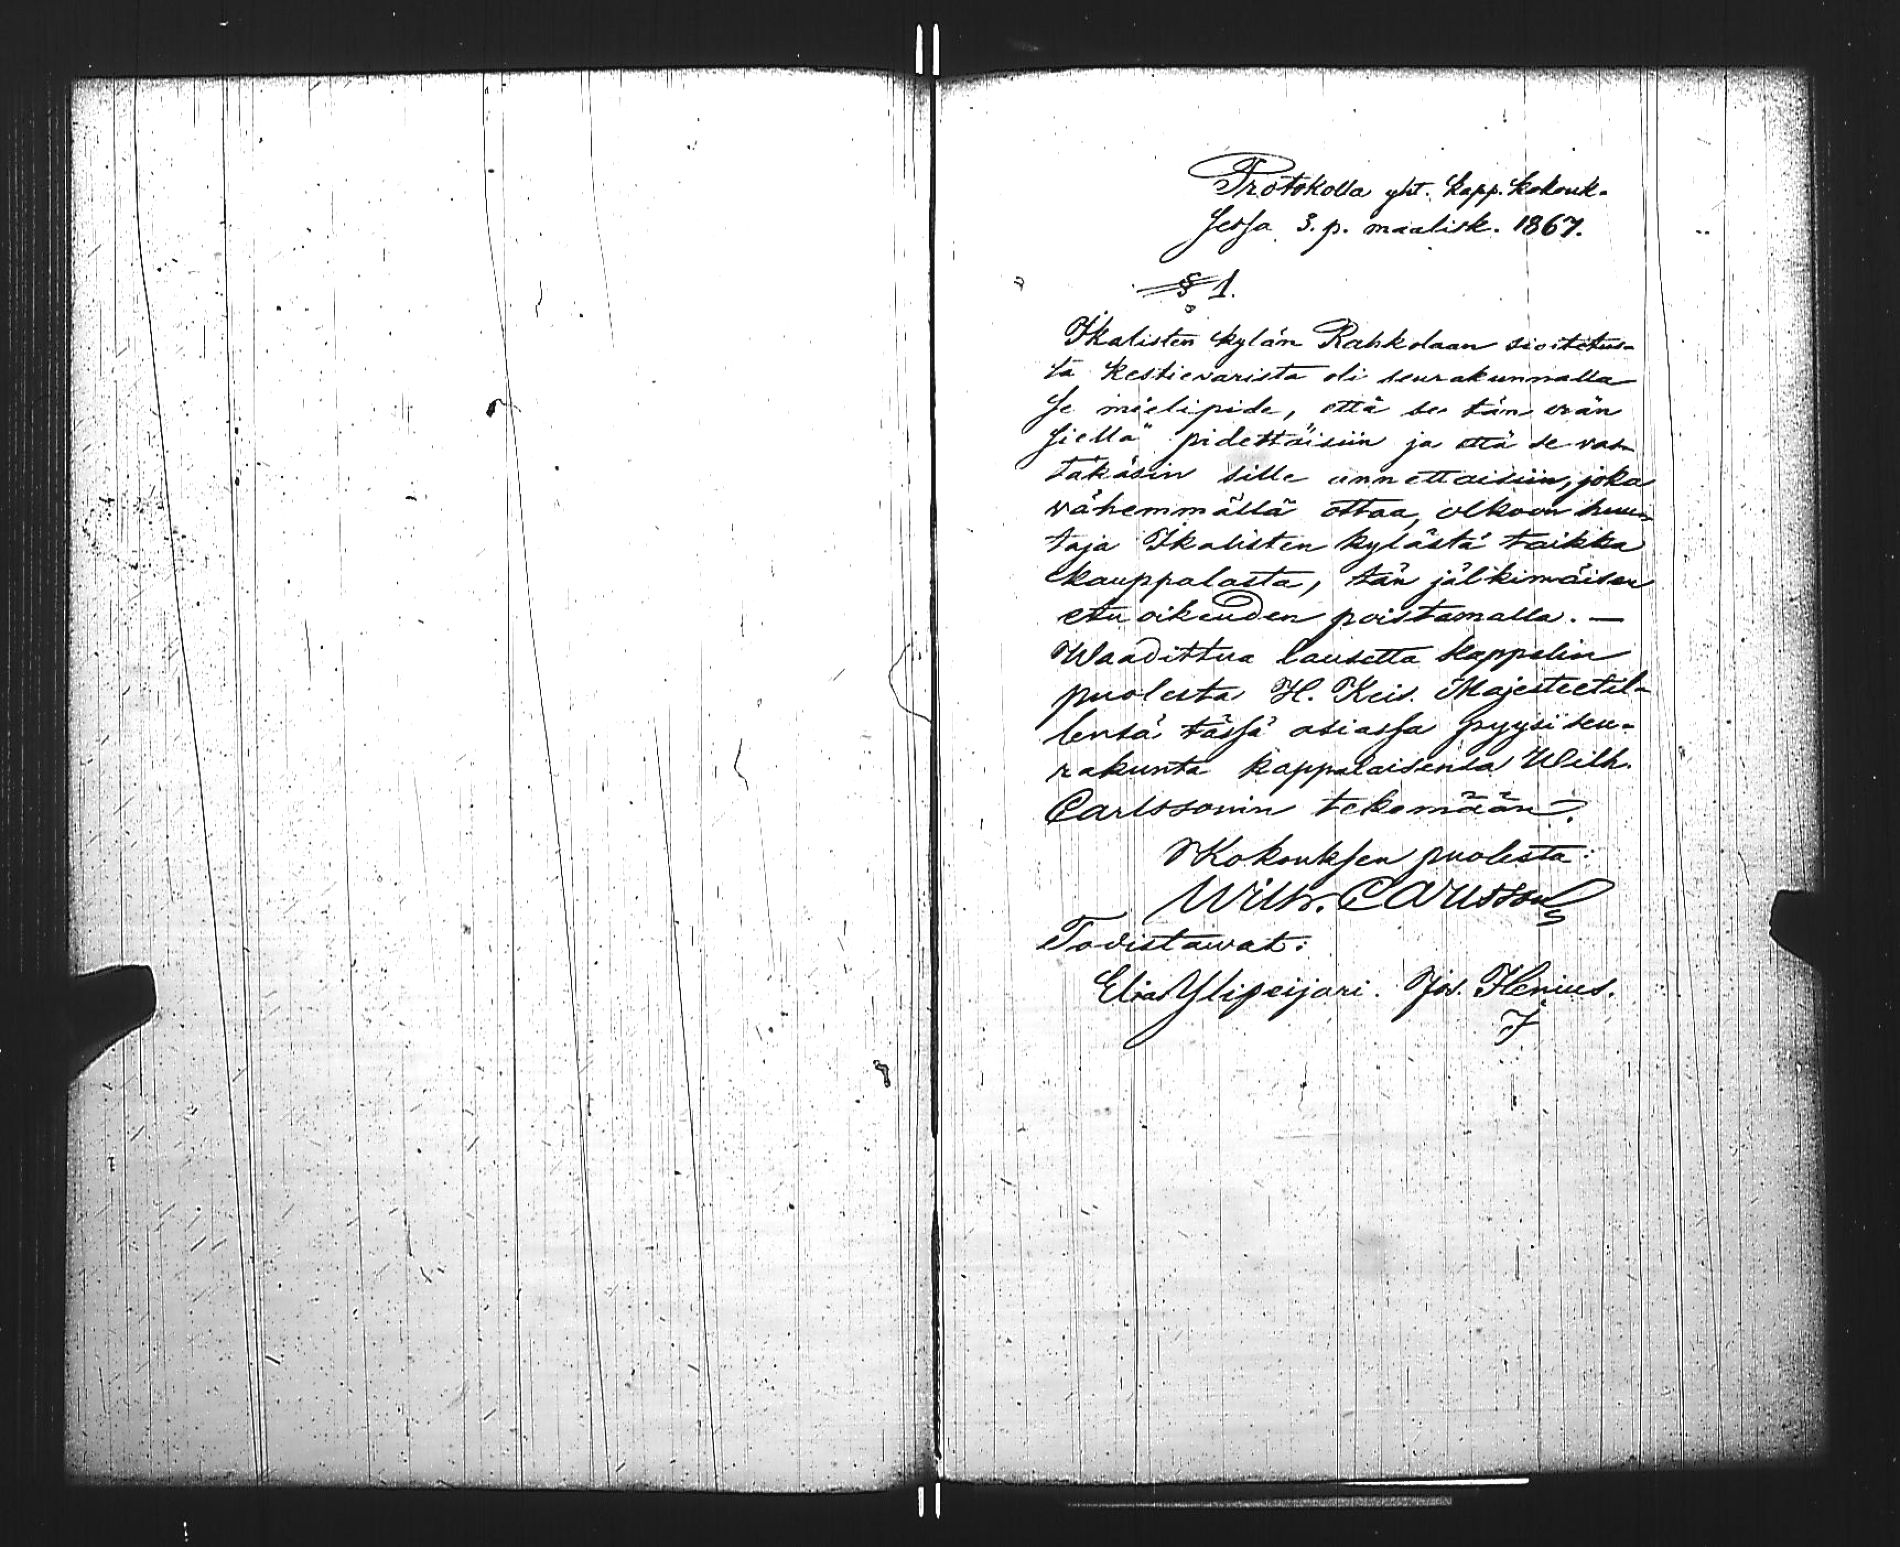 Protokolla yht. kapp. kokouk-
sessa 3. p. maalisk. 1867.
§ 1.
Ikalisten kylän Rahkolaan sioitetus-
ta kestievarista oli seurakunnalla
se mielipide, että se tän erän
siellä pidettäisiin ja että se vas-
takäsin sille annettaisiin, joka
vähemmällä ottaa, olkoon huu-
taja Ikalisten kylästä taikka
kauppalasta, tän jälkimäisen
etu oikeuden poistamalla. —
Waadittua lausetta kappelin
puolesta H. Keis. Majesteetil-
lensä tässä asiassa pyysi seu-
rakunta kappalaisensa Wilh.
Carlssonin tekemään.
Kokouksen puolesta:
Wilh. Carlsson
Todistawat:
Elias Ylipeijari. Jos. Henius.